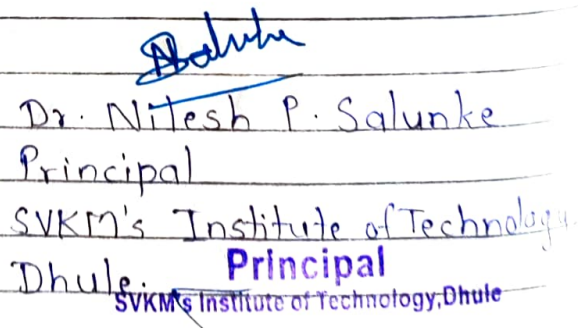 Dr. Nitesh P. Salunke
Principal
SVKM's Institute of Technology
Dhule.
Principal
SVKM's Institute of Technology,Dhule